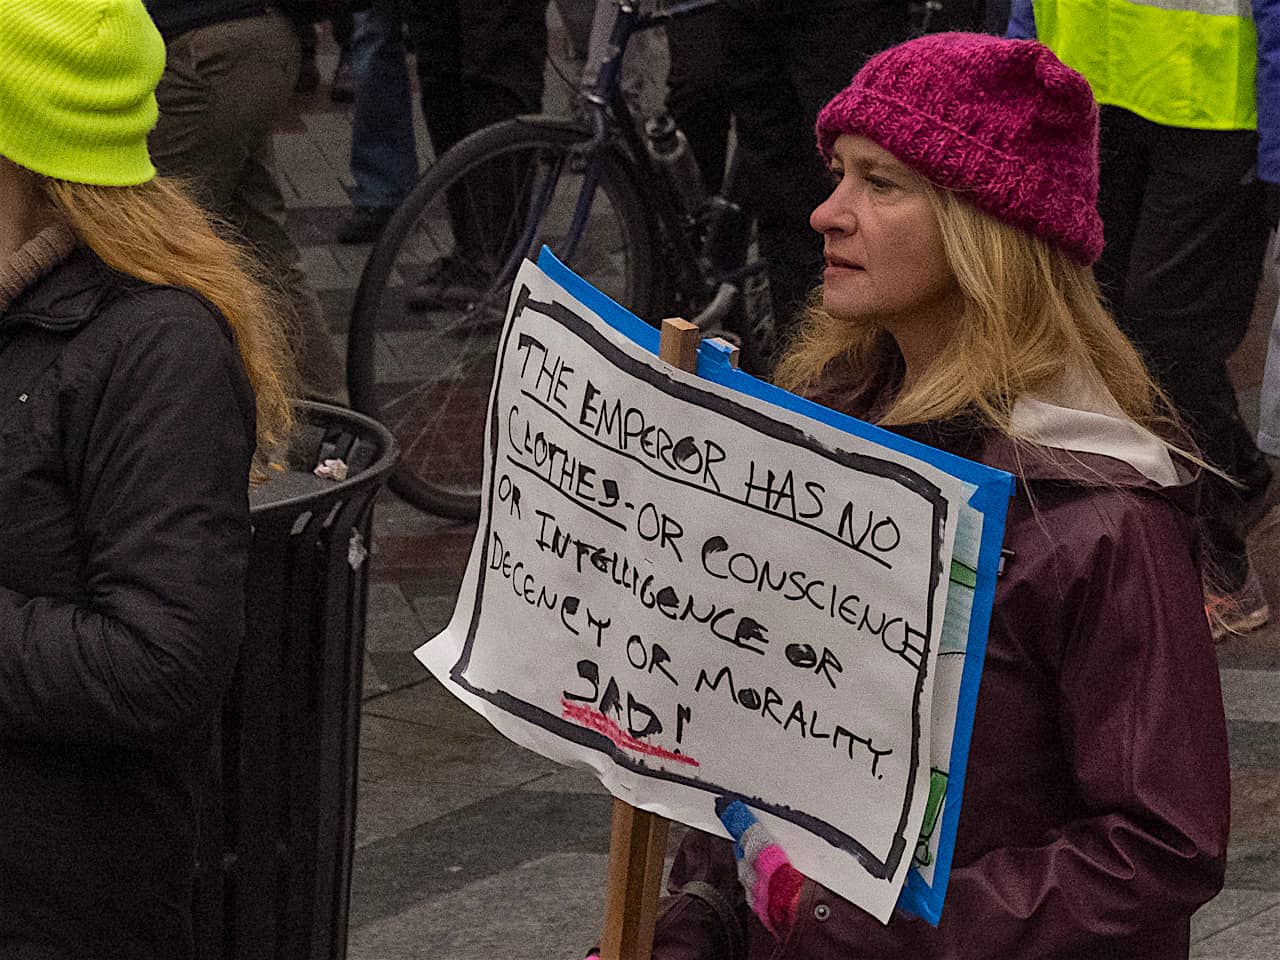 THE EMPEROR HAS NO
CLOTHES-OR CONSCIENCE
OR INTELLIGENCE OR
DECENCY OR MORALITY.
SAD!